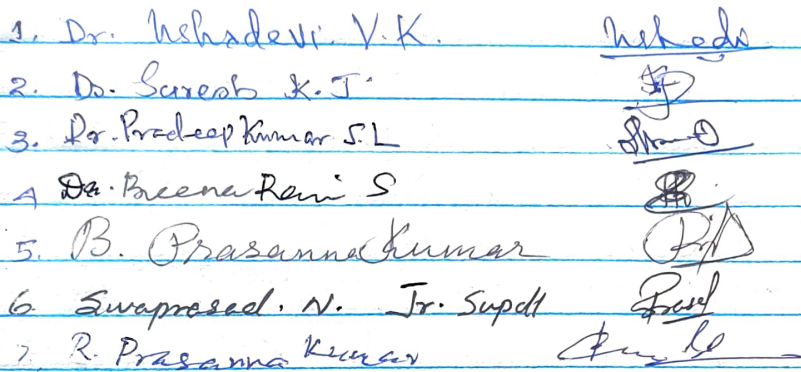 1. Dr. Ushadevi. V.K. Ushadevi
2. Dr. Suresh K.J.
3. Dr. Pradeep Kumar S.L
4 Dr. Beena Rani S
5. B. Prasanna Kumar
6. Sivaprasad. N. Jr. Supdt Prasad
7. R. Prasanna Kumar